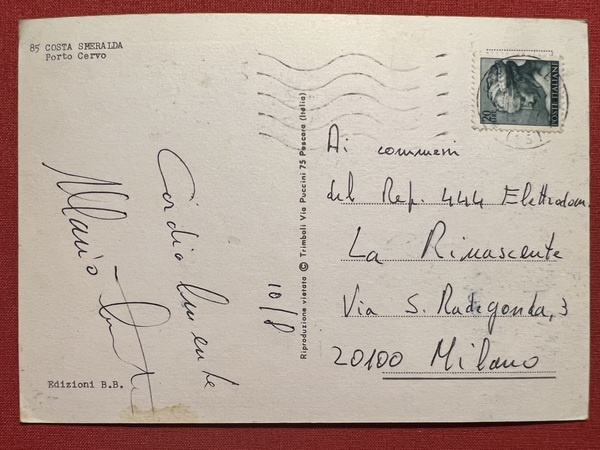 85 COSTA SMERALDA
Porto Cervo
Cordialmente
Mario
10/8
Edizioni B.B.
Riproduzione vietata © Trimboli Via Puccini 75 Pescara (Italia)
POSTE ITALIANE
Ai commessi
del Rep. 444 Elettrodom.
La Rinascente
Via S. Radegonda, 3
20100 Milano